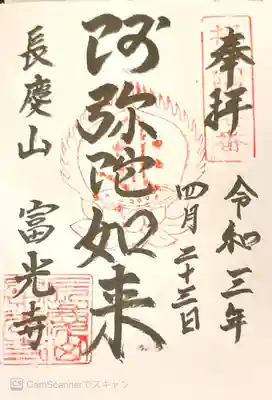 奉拝
令和三年
四月二十三日
阿弥陀如来
長慶山
富光寺
CS CamScannerでスキャン